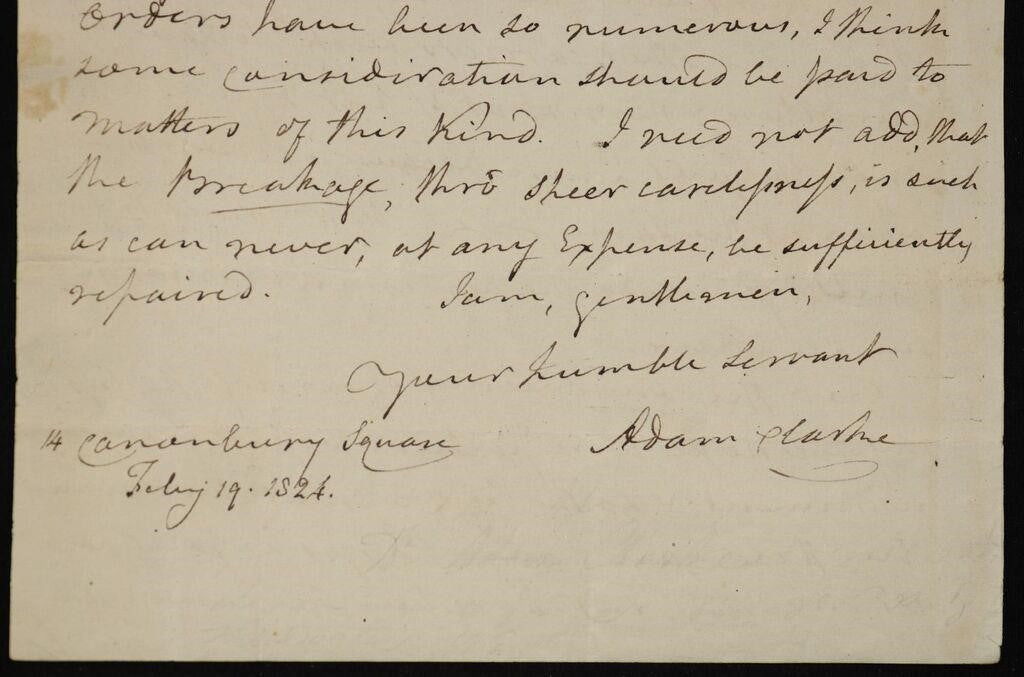 Orders have been so numerous, I think
some consideration should be paid to
matters of this Kind. I need not add, that
the Breakage, thrō sheer carelessness, is such
as can never, at any Expense, be sufficiently
repaired. I am, gentlemen,
Your humble servant
14 Canonbury Square Adam Clarke
Feby 19. 1824.